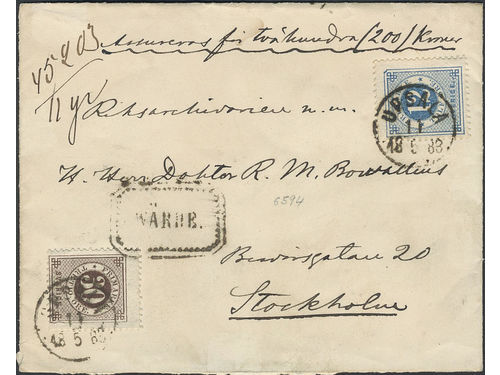 Assureras för tvåhundra (200) Kronor
45203
11 gr
Riksarchivarien m. m.
UPSALA
11
18 5 83
H. Herr Doktor R. M. Bowallius
6594
WÄRDE.
30
11
18 5 83
20
Stockholm